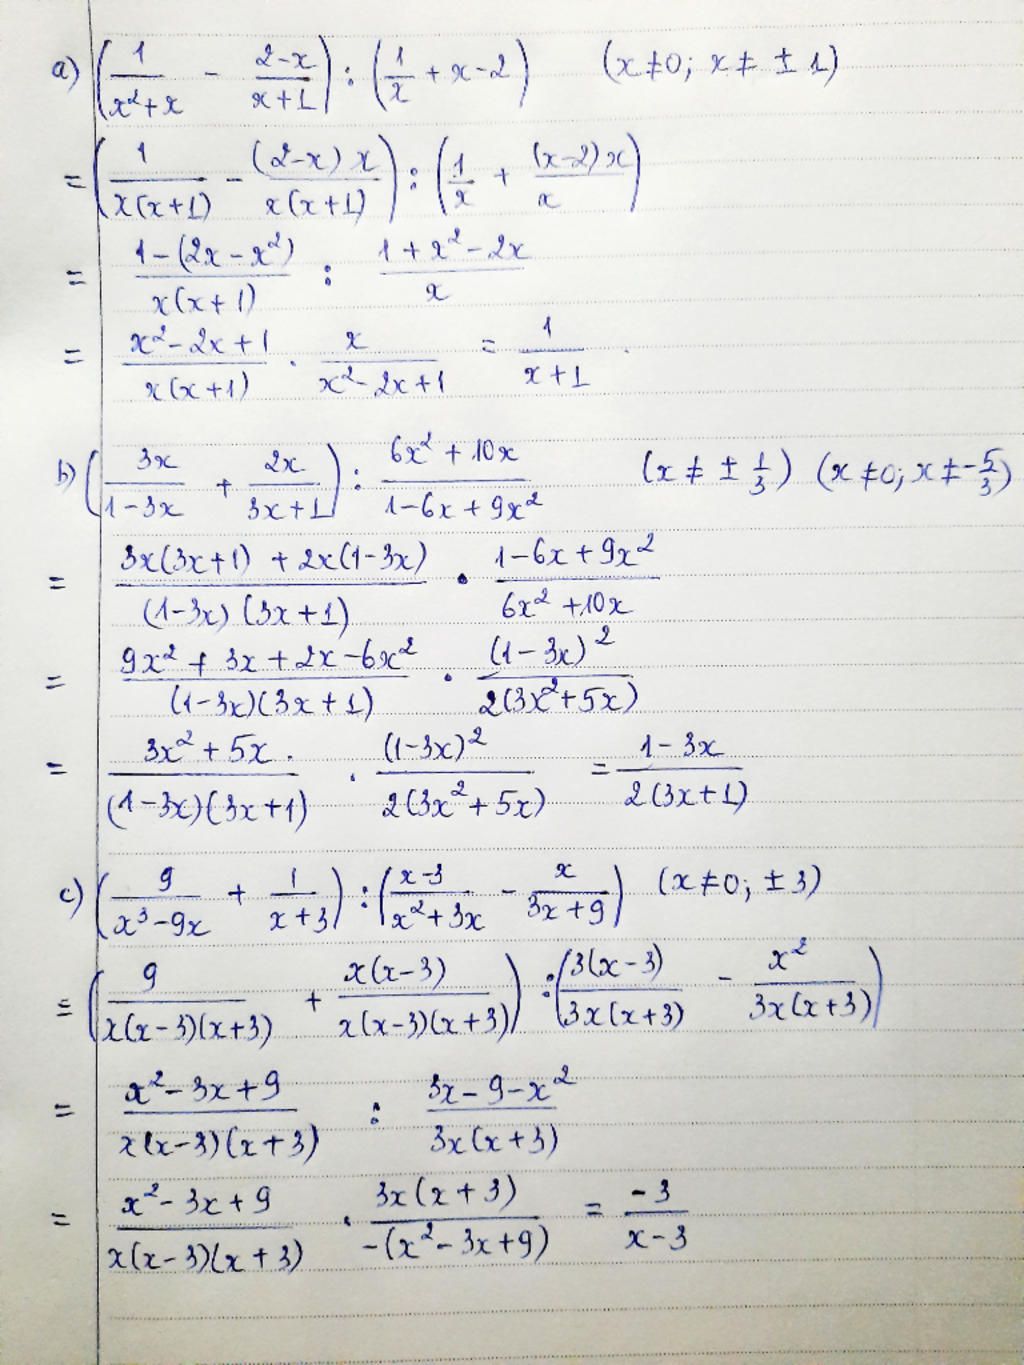 a) (1/(x²+x) - (2-x)/(x+1)) : (1/x + x-2) (x≠0; x≠ ±1)
= (1/(x(x+1)) - ((2-x)x)/(x(x+1))) : (1/x + ((x-2)x)/x)
= (1-(2x-x²))/(x(x+1)) : (1+x²-2x)/x
= (x²-2x+1)/(x(x+1)) . x/(x²-2x+1) = 1/(x+1) .
b) (3x/(1-3x) + 2x/(3x+1)) : (6x²+10x)/(1-6x+9x²) (x ≠ ± 1/3) (x≠0; x≠-5/3)
= (3x(3x+1) + 2x(1-3x))/((1-3x)(3x+1)) . (1-6x+9x²)/(6x²+10x)
= (9x²+3x+2x-6x²)/((1-3x)(3x+1)) . (1-3x)²/(2(3x²+5x))
= (3x²+5x.)/((1-3x)(3x+1)) . (1-3x)²/(2(3x²+5x)) = (1-3x)/(2(3x+1))
c) (9/(x³-9x) + 1/(x+3)) : ((x-3)/(x²+3x) - x/(3x+9)) (x≠0; ±3)
= (9/(x(x-3)(x+3)) + (x(x-3))/(x(x-3)(x+3))) : (3(x-3)/(3x(x+3)) - x²/(3x(x+3)))
= (x²-3x+9)/(x(x-3)(x+3)) : (3x-9-x²)/(3x(x+3))
= (x²-3x+9)/(x(x-3)(x+3)) . (3x(x+3))/(-(x²-3x+9)) = -3/(x-3)